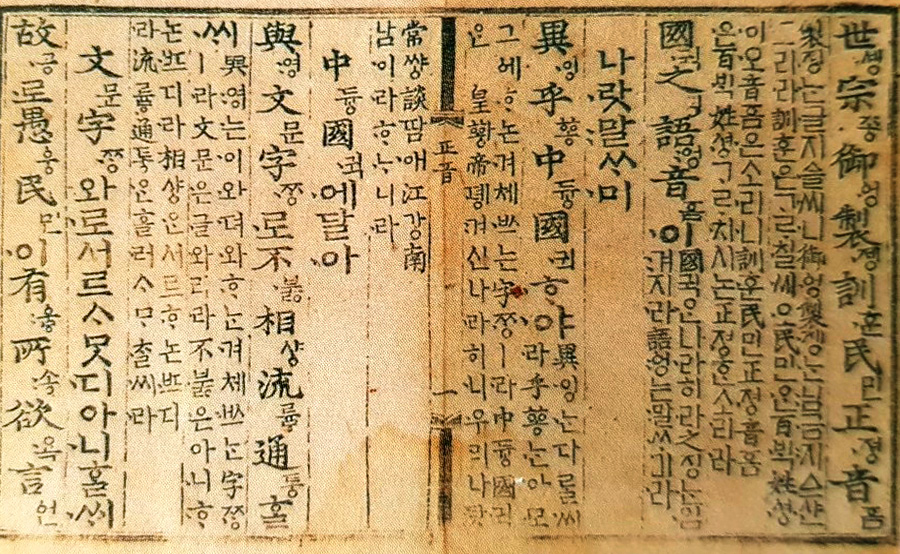 世솅宗종御엉製졩訓훈民민正졍音흠
製졩는글지ᅀᅳᆯ씨니御엉製졩는님금지ᅀᅳ샨
그리라訓훈은ᄀᆞᄅᆞ칠씨오民민ᄋᆞᆫ百ᄇᆡᆨ姓셩
이오音흠은소리니訓훈民민正졍音흠
은百ᄇᆡᆨ姓셩ᄀᆞᄅᆞ치시논正졍ᄒᆞᆫ소리라
國귁之징語ᅌᅥᆼ音흠이國귁ᄋᆞᆫ나라히라之징ᄂᆞᆫ입겨지라語ᅌᅥᆼ는말ᄊᆞ미라
나랏말ᄊᆞ미
異잉乎ᅘᅩᆼ中듀ᇰ國귁ᄒᆞ야異잉는다ᄅᆞᆯ씨라乎ᅘᅩᆼ는아모
그에ᄒᆞ논겨체ᄡᅳ는字ᄍᆞᆼㅣ라中듀ᇰ國귁
ᄋᆞᆫ皇ᅘᅪᆼ帝뎽겨신나라히니우리나랏
正音 一
常쌰ᇰ談땀애江강南
남이라ᄒᆞᄂᆞ니라
中듀ᇰ國귁에달아
與영文문字ᄍᆞᆼ로不부ᇙ相샤ᇰ流류ᇢ通토ᇰᄒᆞᆯ
ᄊᆡ與영는이와뎌와ᄒᆞ는겨체ᄡᅳ는字ᄍᆞᆼ
ㅣ라文문은글와리라不부ᇙ은아니ᄒᆞ
논ᄠᅳ디라相샤ᇰᄋᆞᆫ서르ᄒᆞ논ᄠᅳ디
라流류ᇢ通토ᇰ은흘러ᄉᆞᄆᆞᄎᆞᆯ씨라
文문字ᄍᆞᆼ와로서르ᄉᆞᄆᆞᆺ디아니ᄒᆞᆯᄊᆡ
故공로愚ᅌᅮᆼ民민이有우ᇢ所송欲욕言언